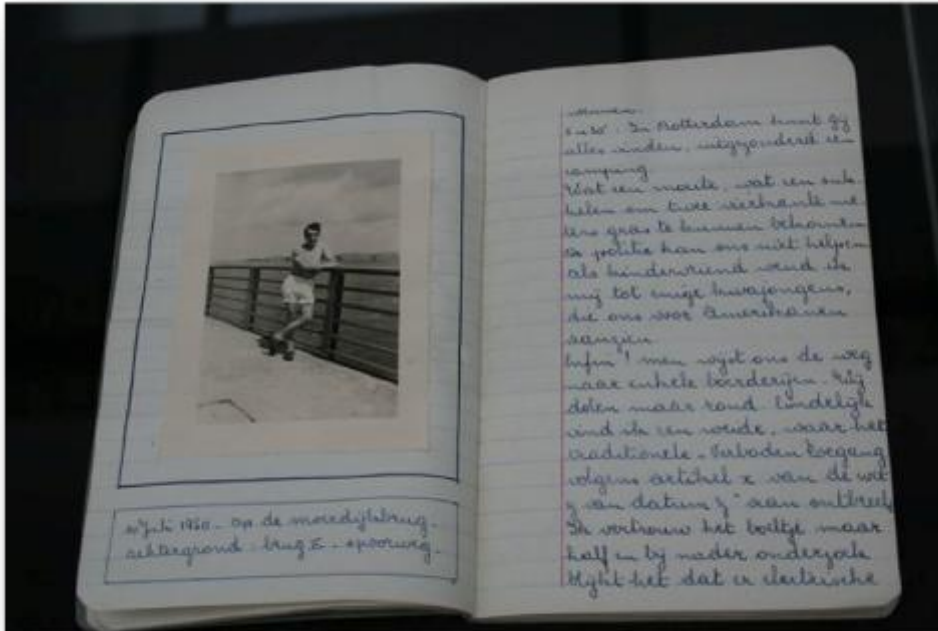 Juli 1950 - op de moerdijkbrug -
achtergrond: brug E - spoorweg -
In Rotterdam kunt gij
alles vinden, uitgezonderd een
camping
Wat een moeite, wat een
om twee vierkante me-
ters gras te kunnen bekomen
De politie kan ons niet helpen
als kindervriend wend ik
mij tot enige kwajongens,
die ons voor Amerikanen
aanzien.
Enfin! men wijst ons de weg
naar enkele boerderijen. Wij
dolen maar rond. Eindelijk
vind ik een weide, waar het
traditionele "Verboden toegang
volgens artikel x van de wet
y van datum z" aan ontbreekt
Ik vertrouw het boeltje maar
half en bij nader onderzoek
blijkt het dat er electrische